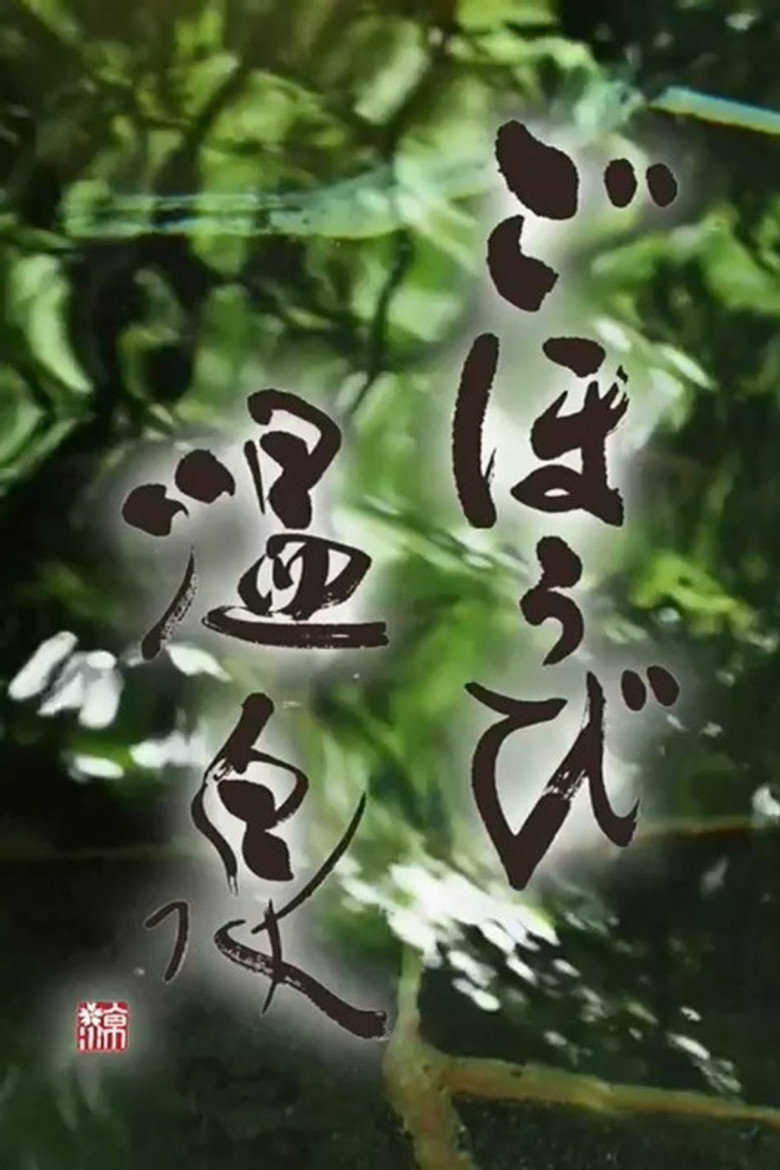 ごほうび
温泉